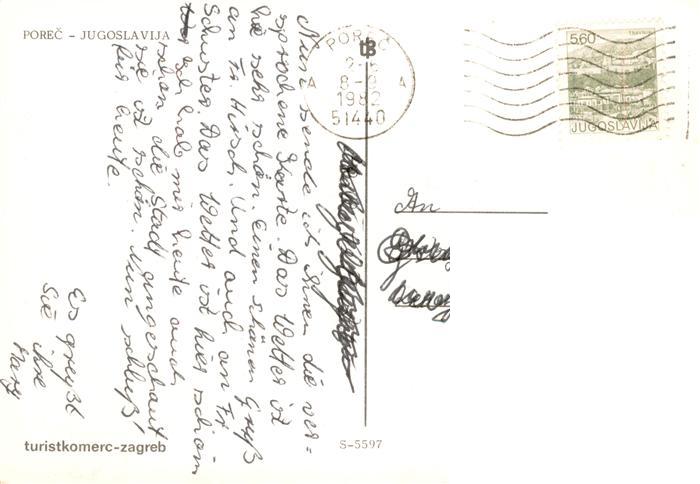 POREČ – JUGOSLAVIJA
Nun sende ich Ihnen die ver-
sprochene Karte. Das Wetter ist
hie sehr schön. Einen schönen Gruß
an Fr. Hirsch. Und auch an Fr.
Schuster. Das Wetter ist hier schön
Ich hab mir heute auch
schon die Stadt angeschaut
sie ist schön. Nun schluß!
für heute.
Es grüßt
Sie
ihre
turistkomerc-zagreb
S-5597
tB
POREČ
8-9
1982
A A
51440
5,60
TRAVNIK
JUGOSLAVIJA
An